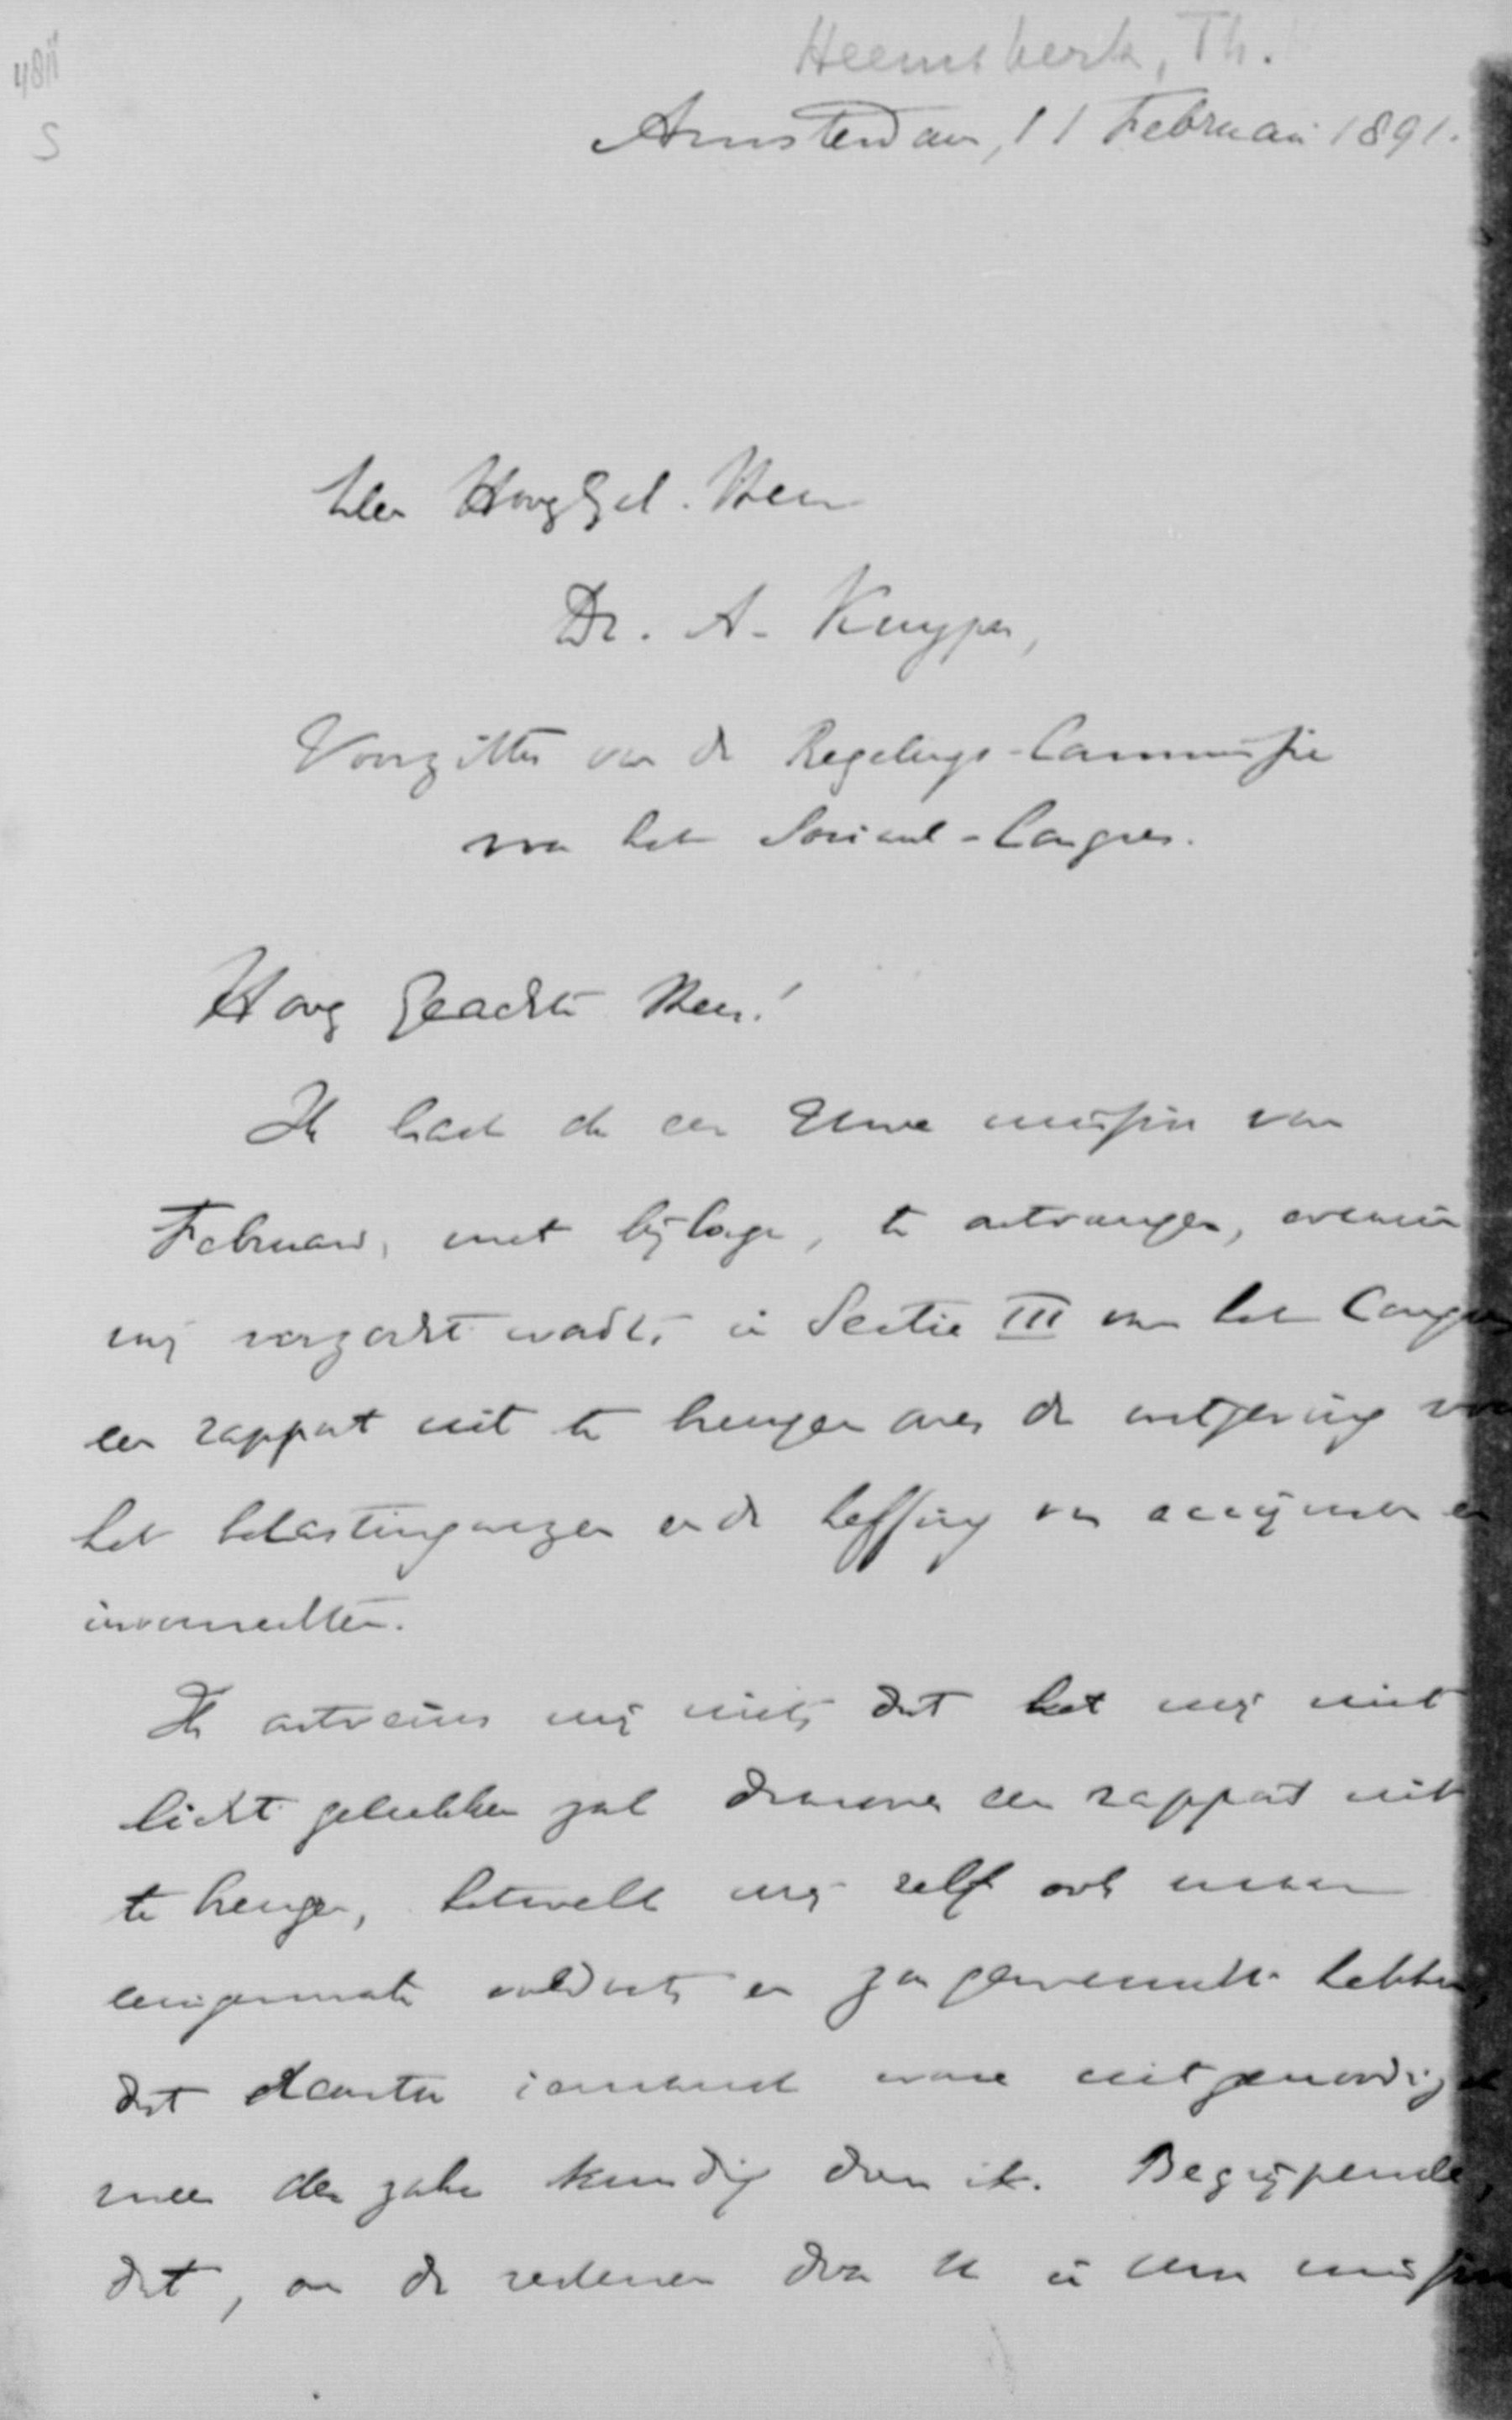 4811
S
Heemskerk, Th.
Amsterdam, 11 Februari 1891.
Den HoogGel. Heer
Dr. A. Kuyper,
Voorzitter van de Regelings-Commissie
van het Sociaal-Congres.
Hoog Geachte Heer!
Ik had de eer Uwe missive van
Februari, met bijlage, te ontvangen, waarin
mij verzocht wordt, in Sectie III van het Congres
een rapport uit te brengen over de ontheffing van
het belastingwezen en de heffing van accijnzen en
invoerrechten.
Ik ontveins mij niet, dat het mij niet
licht gelukken zal daarover een rapport uit
te brengen, hetwelk mij zelf ook maar
eenigermate voldoet, en zou gewenscht hebben,
dat daartoe iemand ware uitgenoodigd
meer der zake kundig dan ik. Begrijpende,
dat, om de redenen door U in Uwe missive